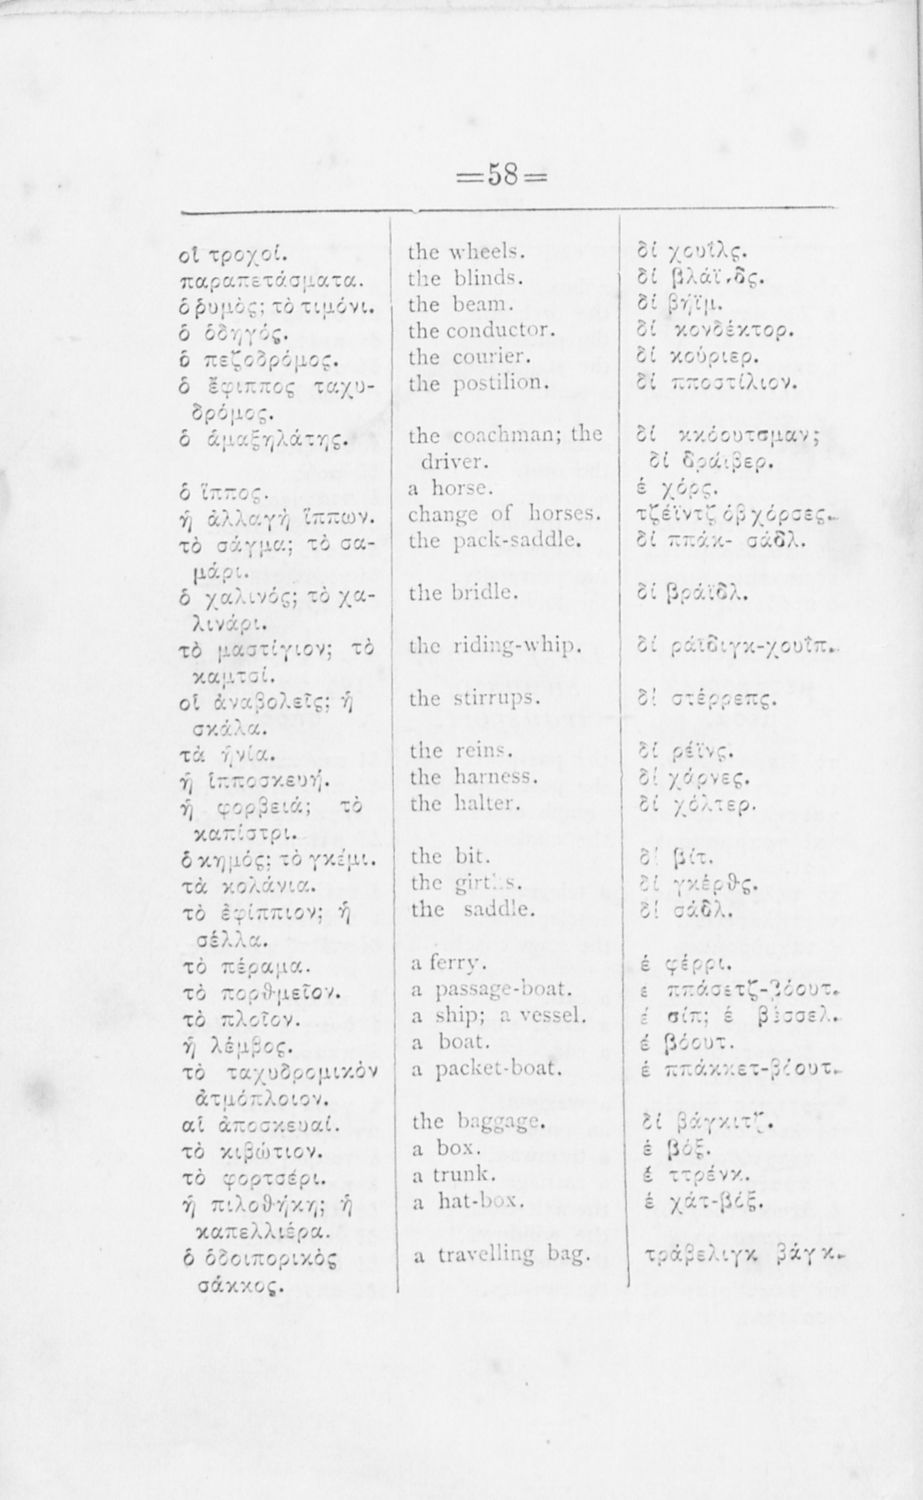 =58=
οἱ τροχοί. the wheels. δί χουΐλς.
παραπετάσματα. the blinds. δί
ὁ ῥυμὸς; τὸ τιμόνι. the beam. δί βήϊμ.
ὁ ὁδηγός. the conductor. δί κονδέκτορ.
ὁ πεζοδρόμος. the courier. δί κούριερ.
ὁ ἔφιππος ταχυ- the postilion. δί πποστίλιον.
δρόμος.
ὁ ἁμαξηλάτης. the coachman; the δί κκόουτσμαν;
driver. δί δράιβερ.
ὁ ἵππος. a horse. ἑ χόρς.
ἡ ἀλλαγὴ ἵππων. change of horses. τζέϊντζ ὀβ χόρσες.
τὸ σάγμα; τὸ σα- the pack-saddle. δί ππάκ- σάδλ.
μάρι.
ὁ χαλινός; τὸ χα- the bridle. δί βράϊδλ.
λινάρι.
τὸ μαστίγιον; τὸ the riding-whip. δί ράϊδιγκ-χουΐπ.
καμτσί.
οἱ ἀναβολεῖς; ἡ the stirrups. δί στέρρεπς.
σκάλα.
τὰ ἡνία. the reins. δί ρέϊνς.
ἡ ἱπποσκευή. the harness. δί χάρνες.
ἡ φορβειά; τὸ the halter. δί χόλτερ.
καπίστρι.
ὁ κημός; τὸ γκέμι. the bit. δί βίτ.
τὰ κολάνια. the girths. δί γκέρθς.
τὸ ἐφίππιον; ἡ the saddle. δί σάδλ.
σέλλα.
τὸ πέραμα. a ferry. ἑ φέρρι.
τὸ πορθμεῖον. a passage-boat. ἑ ππάσετζ-βόουτ.
τὸ πλοῖον. a ship; a vessel. ἑ σίπ; ἑ βέσσελ.
ἡ λέμβος. a boat. ἑ βόουτ.
τὸ ταχυδρομικὸν a packet-boat. ἑ ππάκκετ-βόουτ.
ἀτμόπλοιον.
αἱ ἀποσκευαί. the baggage. δί βάγκιτζ.
τὸ κιβώτιον. a box. ἑ βόξ.
τὸ φορτσέρι. a trunk. ἑ ττρένκ.
ἡ πιλοθήκη; ἡ a hat-box. ἑ χάτ-βόξ.
καπελλιέρα.
ὁ ὁδοιπορικὸς a travelling bag. τράβελιγκ βάγκ.
σάκκος.